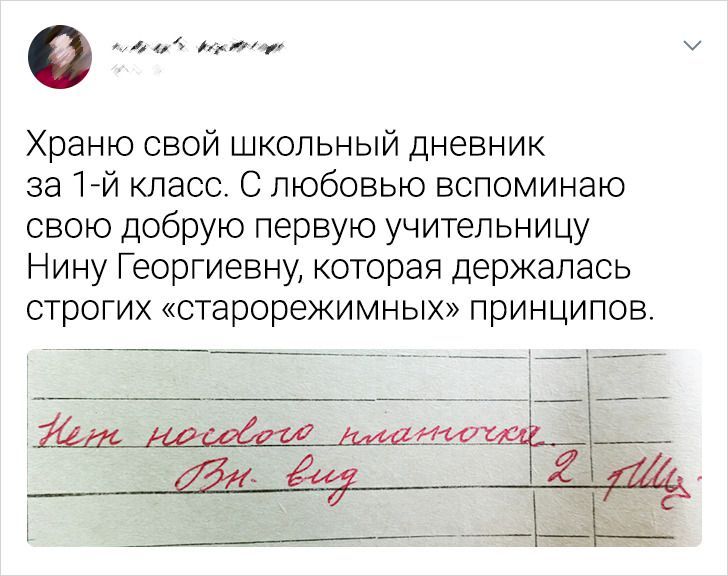 Храню свой школьный дневник
за 1-й класс. С любовью вспоминаю
свою добрую первую учительницу
Нину Георгиевну, которая держалась
строгих «старорежимных» принципов.
Нет носового платочка.
Вн. вид 2